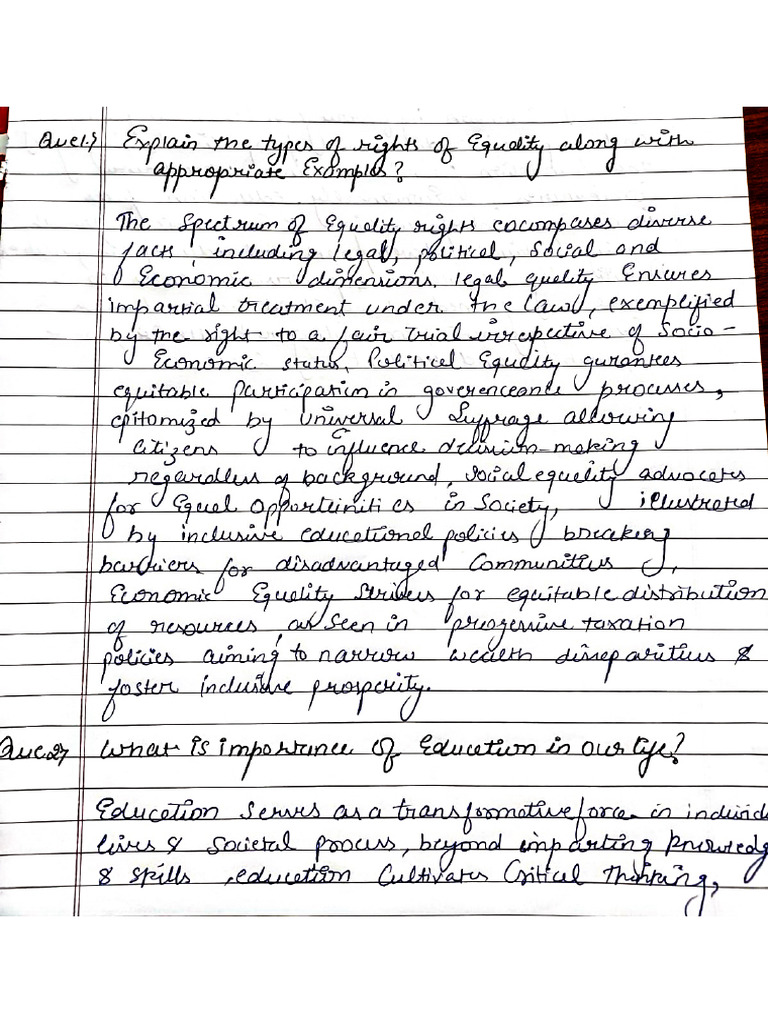 Que1.> Explain the types of rights of Equality along with
appropriate Examples?
The Spectrum of Equality rights encompases diverse
facts, including legal, political, Social and
Economic dimensions. legal quelity Ensures
impartial treatment under the law, exemplified
by the right to a fair trial irrespective of Socio-
Economic status, Political Equality gurantees
equitable Participation in governceance processes,
epitomized by universal Suffrage allowing
citizens to influence decision-making
regardless of background, social equality advocates
for Equal opportuinities in Society, illustrated
by inclusive educational policies breaking
barriers for disadvantaged Communities,
Economic Equality Strives for equitable distribution
of resources, as seen in progessive taxation
policies aiming to narrow wealth disreparities &
foster inclusive prosperity.
Que.2> What is importance of Education in our life?
Education serves as a transformative force in individ
lives & societal process, beyond imparting knowledg
& skills, education Cultivates Critical Thinking,